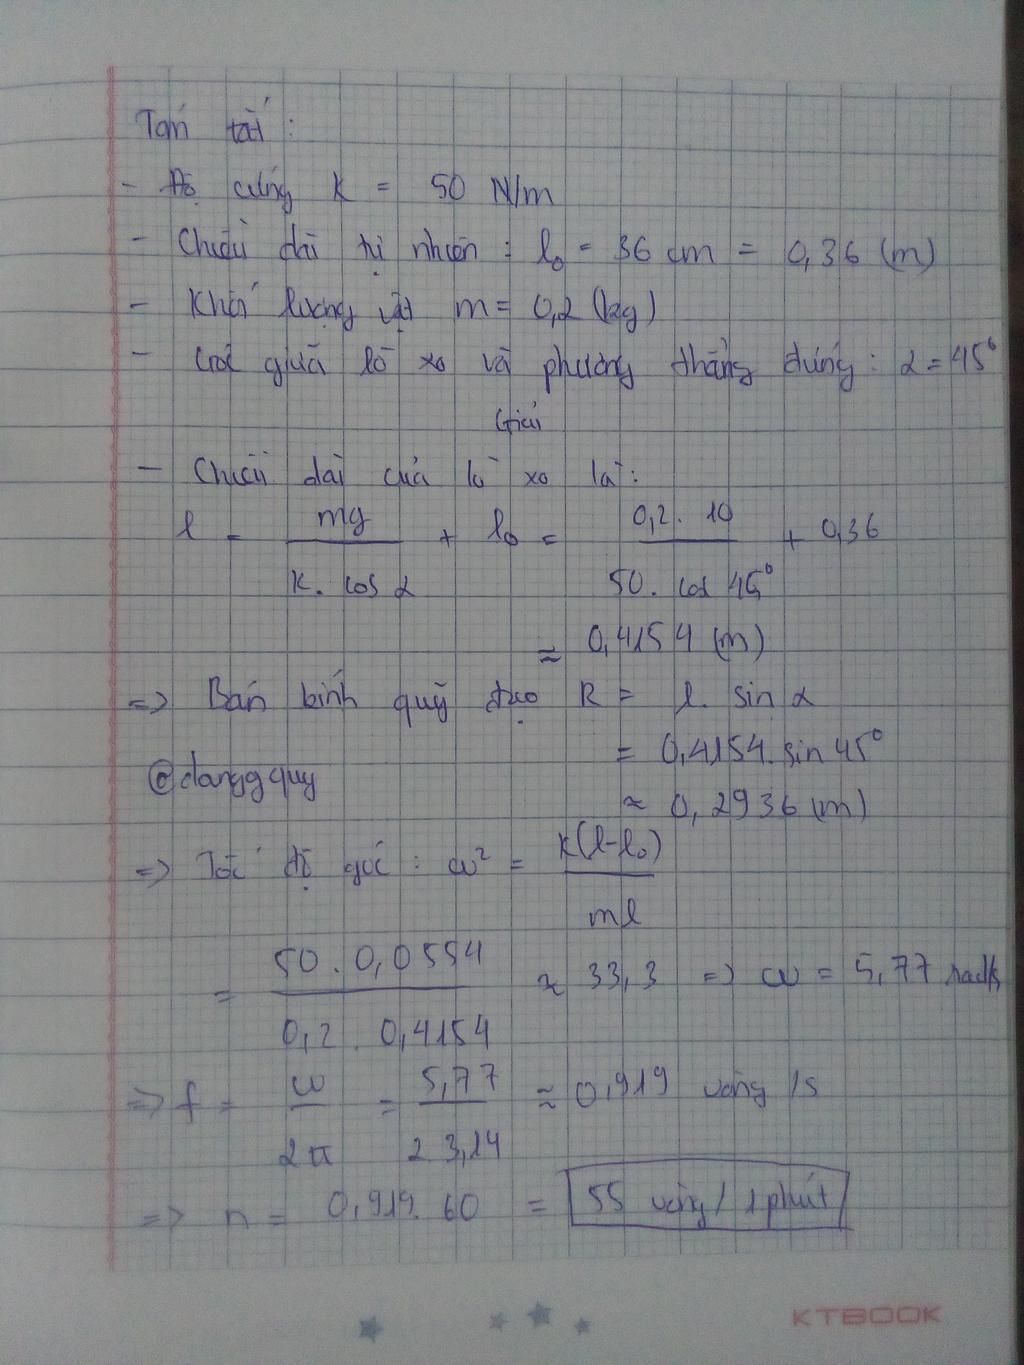 Tóm tắt :
- Độ cứng K = 50 N/m
- Chiều dài tự nhiên : l₀ = 36 cm = 0,36 (m)
- Khối lượng vật m = 0,2 (kg)
- Góc giữa lò xo và phương thẳng đứng : α = 45°
Giải
- Chiều dài của lò xo là :
l = mg / K. cos α + l₀ = 0,2. 10 / 50. cos 45° + 0,36
≈ 0,4154 (m)
=> Bán kính quỹ đạo R = l. sin α
= 0,4154. sin 45°
@danggquy
≈ 0,2936 (m)
=> Tốc độ góc : ω² = K(l-l₀) / ml
= 50 . 0,0554 / 0,2 . 0,4154 ≈ 33,3 => ω = 5,77 rad/s
=> f = ω / 2π = 5,77 / 2 3,14 ≈ 0,919 vòng /s
=> n = 0,919. 60 = 55 vòng / 1 phút
KTBOOK